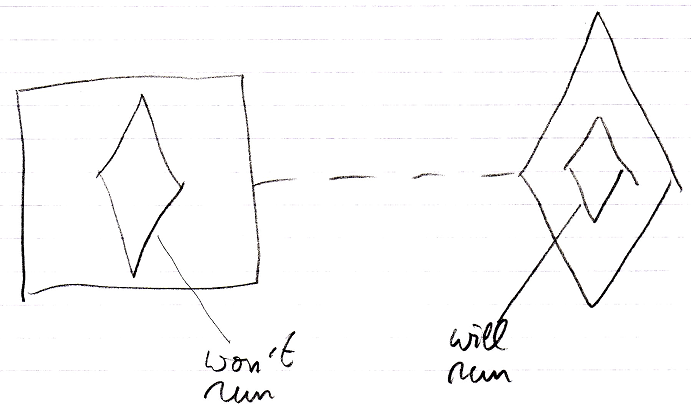 won't
run
will
run